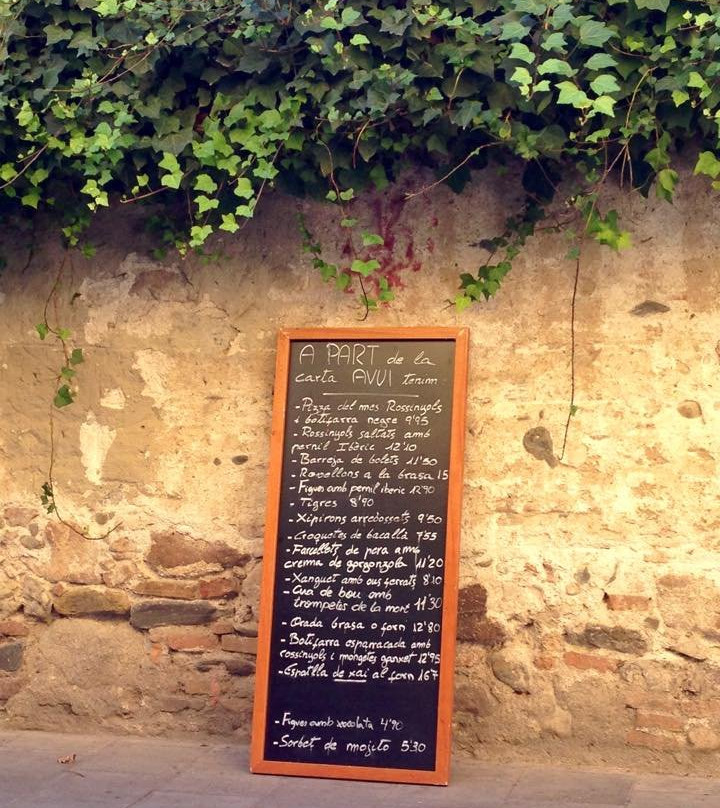 A PART de la
carta AVUI tenim
- Pizza del mes Rossinyols
i botifarra negre 9'95
- Rossinyols saltats amb
pernil Ibèric 12'10
- Barreja de bolets 11'50
- Rovellons a la brasa 15
- Figues amb pernil iberic 12'90
- Tigres 8'90
- Xipirons arrebossats 9'50
- Croquetes de bacallà 7'55
- Farcellets de pera amb
crema de gorgonzola 11'20
- Xanguet amb ous ferrats 8'10
- Cua de bou amb
trompetes de la mort 11'30
- Orada brasa o forn 12'80
- Botifarra esparracada amb
rossinyols i mongetes ganxet 12'95
- Espatlla de xai al forn 16'7
- Figues amb xocolata 4'90
- Sorbet de mojito 5'30